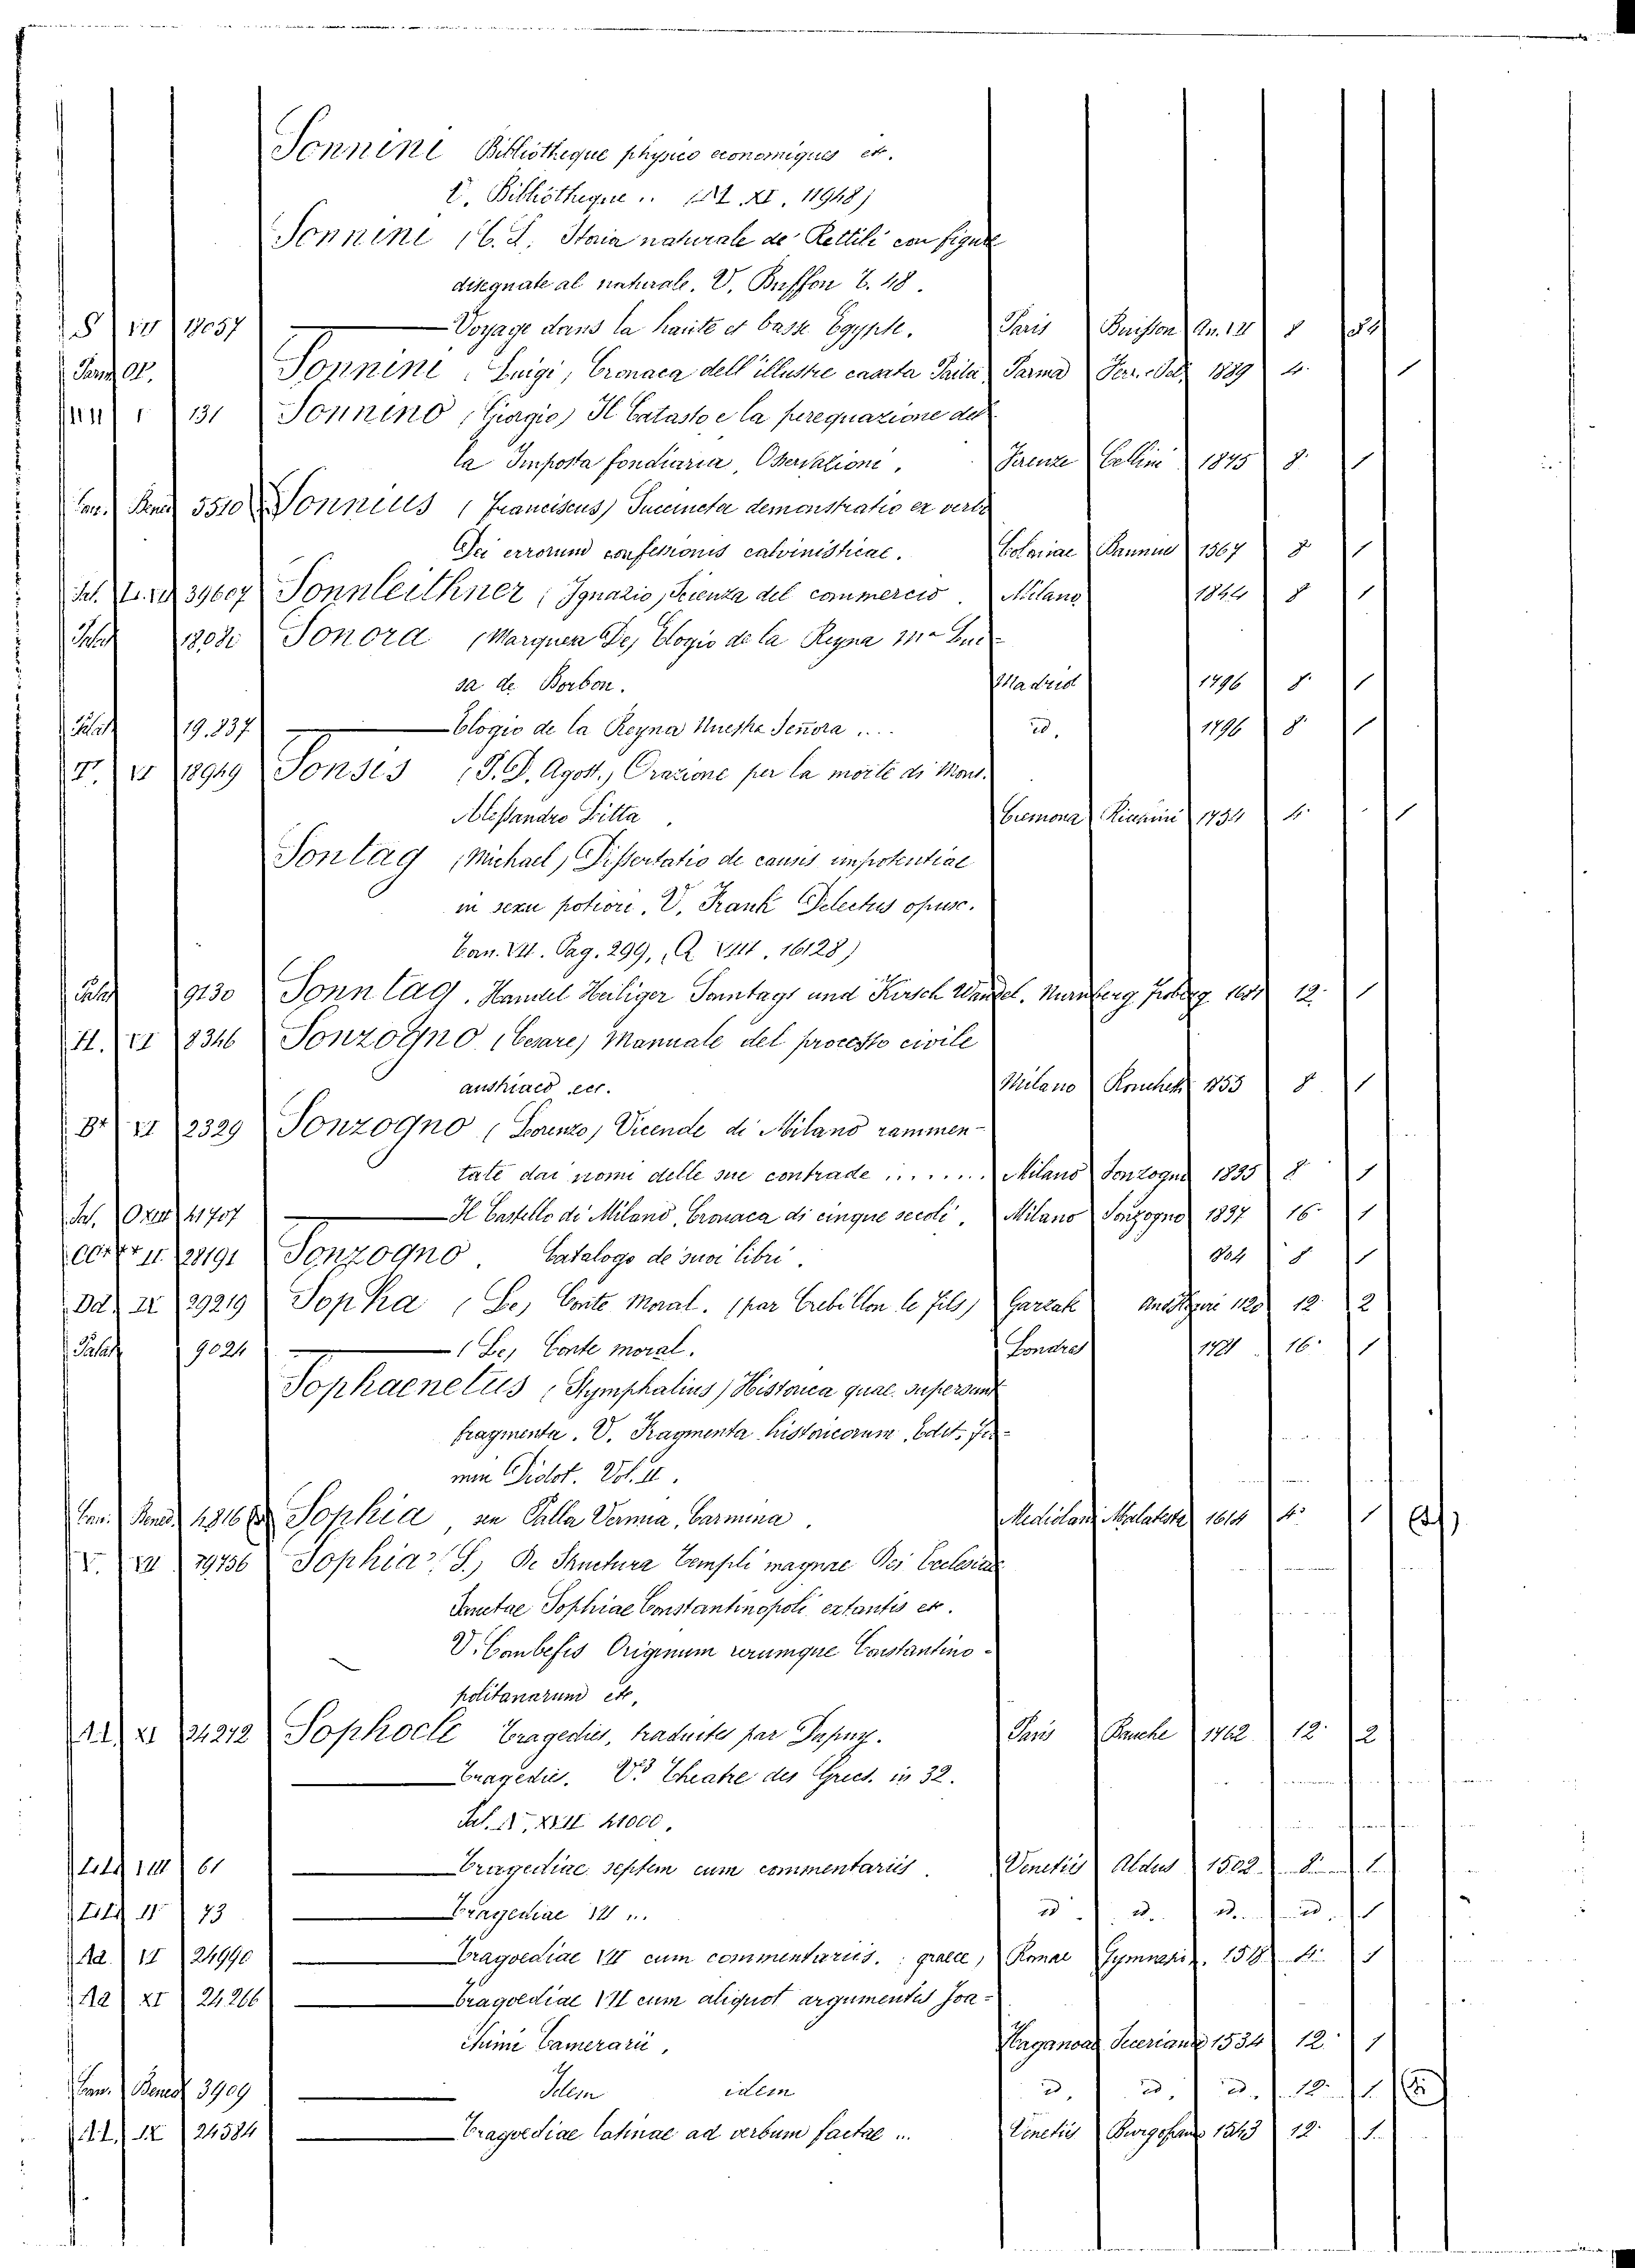 Sonnini Bibliotheque physico economiques etc.
V. Bibliotheque .. XI. 11948)
Sonnini (C. S. Storia naturale de' Rettili con figure
disegnate al naturale. V. Buffon T. 48.
S 18057 — Voyage dans la haute et basse Egypte. Paris Buisson An. 8
Sonnini Luigi, Cronaca dell' illustre casata Parma 1889 4.
131 Sonnino (Giorgio) Il Catasto e la perequazione del
la Imposta fondiaria, Osservazioni, Firenze Cellini 1875 8. 1
Can. Bened 5510 Sonnius (Franciscus) Succincta demonstratio ex verbo
Dei errorum confessionis calvinisticae. Coloniae 1567 8 1
39607 Sonnleithner (Ignazio, Scienza del commercio. Milano 1844 8 1
Palat Sonora (Marquesa De) Elogio de la Reyna Ma Lui-
sa de Borbon. Madrid 1796 8. 1
Palat 19.837 — Elogio de la Reyna Nuestra Señora .... id. 1796 8. 1
18949 Sonsis (P. D. Agost., Orazione per la morte di Mons.
Alessandro Litta Cremona Ricchini 4. 1
Sontag (Michael) Dissertatio de causis impotentiae
in sexu potiori. V. Frank Delectus opusc.
Can. VII. Pag. 299, 16128)
Palat 9130 Sonntag. Handel Heiliger Sonntags und Kirsch Wandel. Nurnberg 12. 1
H. VI 8346 Sonzogno (Cesare) Manuale del processo civile
austriaco ecc. Milano Ronchetti 1855 8. 1
2329 Sonzogno (Lorenzo) Vicende di Milano rammen-
tate dai nomi delle sue contrade ........ Milano Sonzogno 1835 8 1
41707 — Il Castello di Milano, Cronaca di cinque secoli. Milano Sonzogno 1837 16. 1
28191 Sonzogno. Catalogo de' suoi libri. 8 1
Dd. IX 29219 Sopha (Le) Conte Moral. (par Crebillon le fils) Gazzah 1120 12. 2
Palat 9024 — (Le) Conte moral. Londres 16. 1
Sophaenetus (Stymphalius) Historica quae supersunt
fragmenta. V. Fragmenta historicorum, Edit. Fir-
min Didot. Vol. II.
Can. Bened. Sophia, sen Palla Carmina. Mediolani Malatesta 1614 4. 1
V. VII 29736 Sophia (S.) De Structura Templi magnae Dei Ecclesiae
Sanctae Sophiae Constantinopoli extantis etc.
V. Combefis Originum rerumque Constantino-
politanarum etc.
XI 24272 Sophocle Tragedies, traduites par Dupuy. Paris Bauche 1762 12. 2
— Tragedie. Vi Theatre des Grecs. in 32.
XIII 41000.
61 — Tragediae septem cum commentariis. Venetiis Aldus 1502 8. 1
73 — Tragediae VII ... id. id. id. id. 1
Aa. II 24990 — Tragoediae VII cum commentariis. graece, Romae Gymnasii. 4. 1
Aa XI 24266 — Tragoediae VII cum aliquot argumentis Joa-
chimi Camerarii, Haganoae Secerianis 1534 12. 1
Can. Bened 3909 — Idem idem id. id. id. 12. 1
IX 24584 — Tragoediae latinae ad verbum factae ... Venetiis Burgofranc 1543 12. 1.